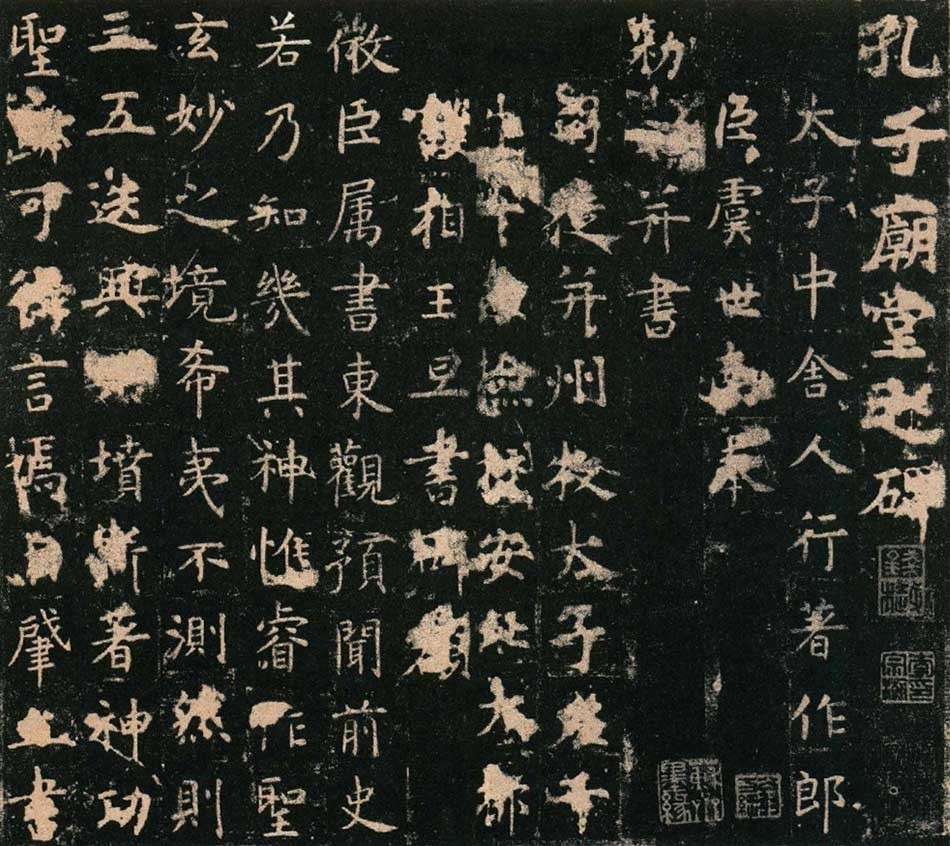 孔子廟堂之碑
太子中舍人行著作郎
臣虞世南奉
勑并書
司徒并州牧太子左千
檢校安北大都
護相王旦書碑額
微臣属書東觀預聞前史
若乃知幾其神惟睿作聖
玄妙之境希夷不測然則
三五迭興墳斯著神功
聖迹可得言焉自肇立書